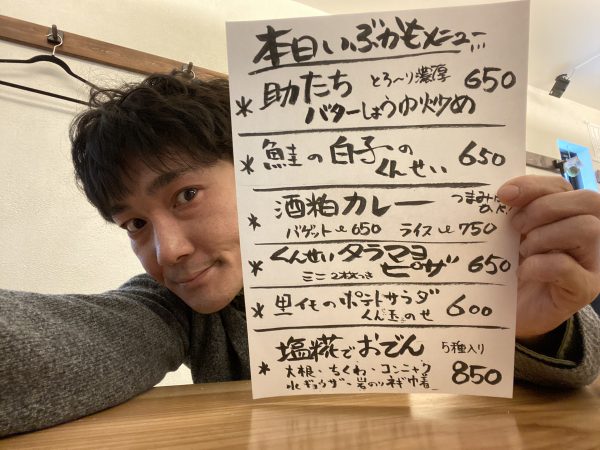 本日いぶかもメニュー
助たち とろ〜り濃厚 650
バターしょうゆ炒め
鮭の白子の
くんせい 650
酒粕カレー つまみに
バゲット 650 ライス 750
くんせいタラマヨ
ミニ2枚つき ピザ 650
里イモのポテトサラダ 600
くん玉のせ
塩糀でおでん 5種入り
大根・ちくわ・コンニャク 850
水ギョウザ・岩のりネギ巾着